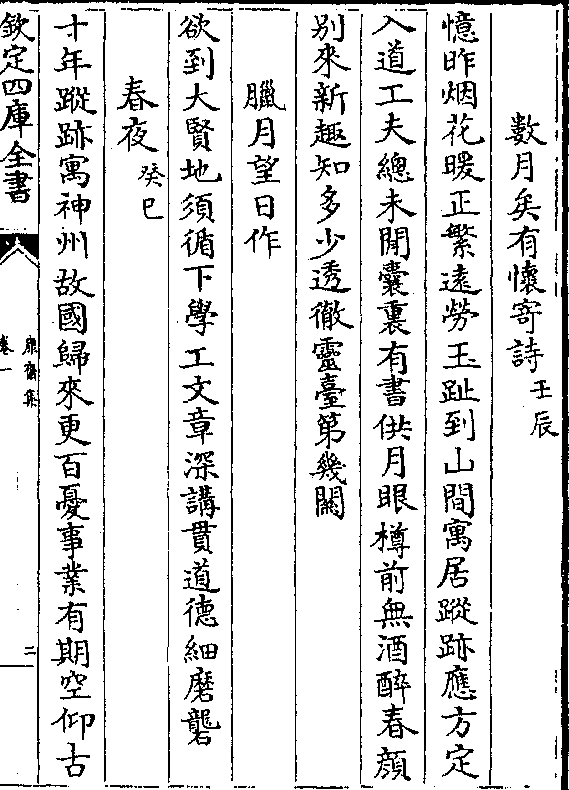 數月矣有懷寄詩壬辰
憶昨烟花暖正繁遠勞玉趾到山間寓居蹤跡應方定
入道工夫總未閒囊裏有書供月眼樽前無酒醉春顔
别來新趣知多少透徹靈臺第幾關
臘月望日作
欲到大賢地須循下學工文章深講貫道德細磨礱
春夜癸巳
十年蹤跡寓神州故國歸來更百憂事業有期空仰古
欽定四庫全書
康齋集
卷一
二